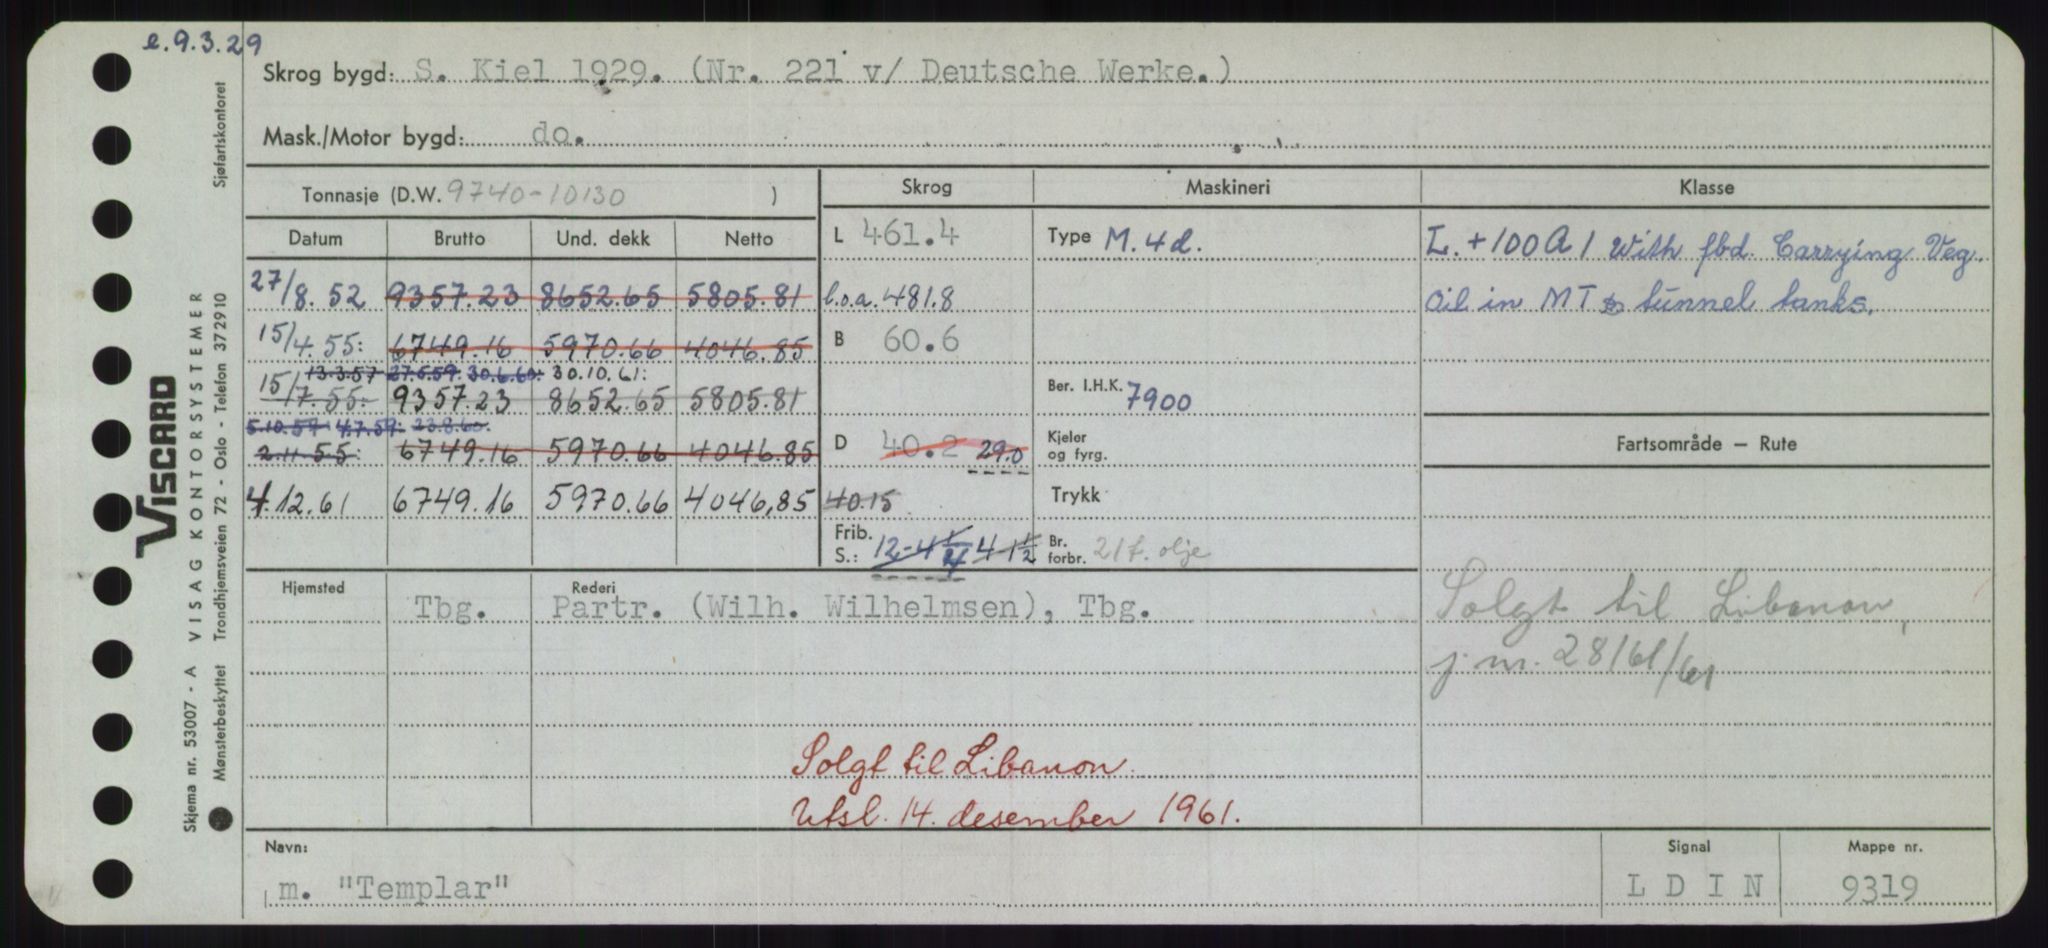 e. 9.3.29
Skrog bygd: S. Kiel 1929. (Nr. 221 v/ Deutsche Werke.)
Mask./Motor bygd: do.
Tonnasje (D.W. 9740-10130 )
Datum Brutto Und. dekk Netto
27/8. 52 9357.23 8652.65 5805.81
15/4. 55: 6749.16 5970.66 4046.85
13.3.57 27.5.59. 30.6.60: 30.10.61:
15/7. 55: 9357.23 8652.65 5805.81
5.10.57 4.7.59: 23.8.60.
2.11.55: 6749.16 5970.66 4046.85
4.12.61 6749.16 5970.66 4046,85
Skrog
L 461.4
l.o.a. 481.8
B 60.6
D 40.2 29.0
40.15
Frib. S.: 12-4 1/4 4 1 1/2
Maskineri
Type M. 4 d.
Ber. I.H.K. 7900
Kjeler
og fyrg.
Trykk
Br.
forbr. 21 t. olje
Klasse
L. +100 A 1 With fbd. Carrying Veg.
Oil in MT & tunnel tanks.
Fartsområde — Rute
Solgt til Libanon,
j.nr. 28161/61
Hjemsted Rederi
Tbg. Partr. (Wilh. Wilhelmsen), Tbg.
Solgt til Libanon.
Utsl. 14. desember 1961.
Navn: Signal Mappe nr.
m. "Templar" L D I N 9319
VISCARD
Skjema nr. 53007 - A VISAG KONTORSYSTEMER
Mønsterbeskyttet Trondhjemsveien 72 - Oslo - Telefon 372910 Sjøfartskontoret